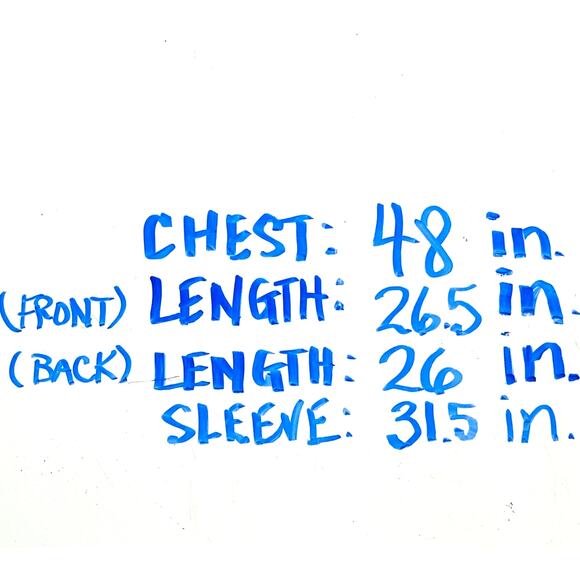 CHEST: 48 in.
(FRONT) LENGTH: 26.5 in.
(BACK) LENGTH: 26 in.
SLEEVE: 31.5 in.